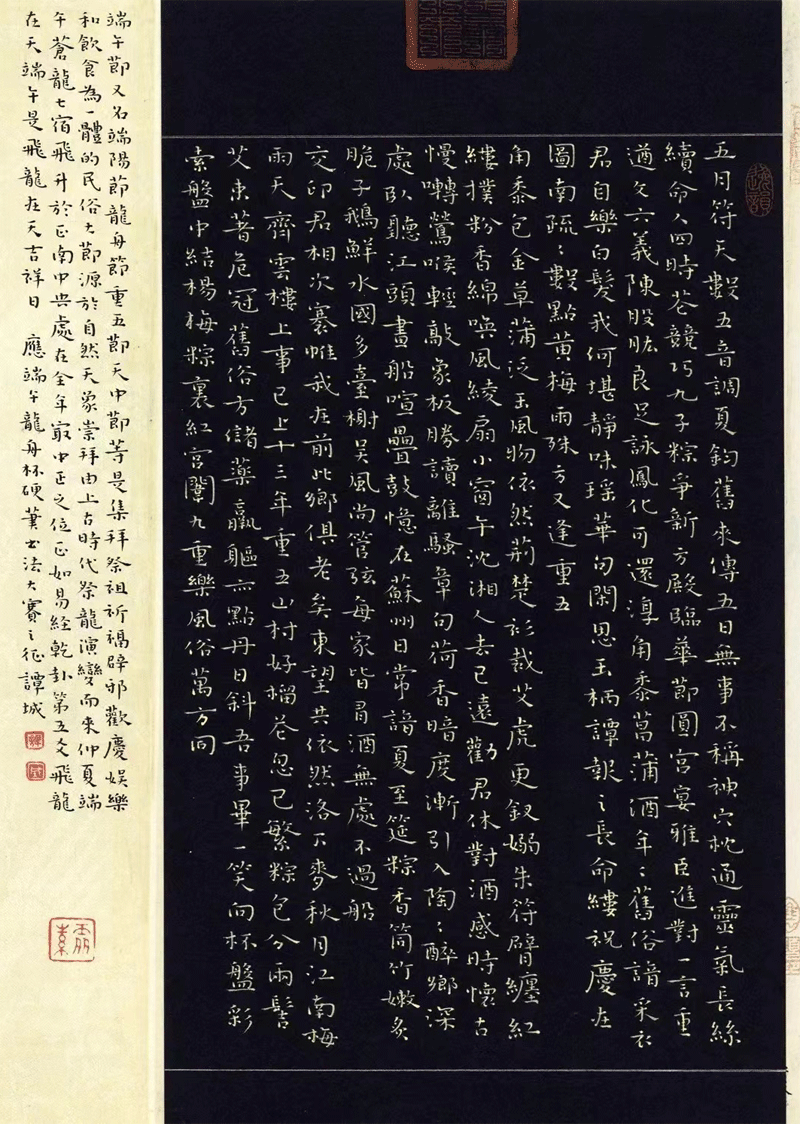 五月符天數五音調夏鈞舊來傳五日無事不稱神穴枕通靈氣長絲
續命人四時花競巧九子粽爭新方殿臨華節圓宮宴雅臣進對一言重
遒文六義陳股肱良足詠鳳化可還淳角黍菖蒲酒年〻舊俗諳采衣
君自樂白髮我何堪靜味瑤華句閑思玉柄譚報之長命縷祝慶在
圖南疏〻數點黃梅雨殊方又逢重五
角黍包金草蒲泛玉風物依然荊楚衫裁艾虎更釵嫋朱符臂纏紅
縷撲粉香綿喚風綾扇小窗午沈湘人去已遠勸君休對酒感時懷古
慢囀鶯喉輕敲象板勝讀離騷章句荷香暗度漸引入陶〻醉鄉深
處臥聽江頭畫船喧疊鼓憶在蘇州日常諳夏至筵粽香筒竹嫩炙
脆子鵝鮮水國多臺榭吳風尚管弦每家皆有酒無處不過船
交印君相次褰帷我在前此鄉俱老矣東望共依然洛下麥秋月江南梅
雨天齊雲樓上事已上十三年重五山村好榴花忽已繁粽包分兩髻
艾束著危冠舊俗方儲藥羸軀亦點丹日斜吾事畢一笑向杯盤彩
索盤中結楊梅粽裏紅宮闈九重樂風俗萬方同
端午節又名端陽節龍舟節重五節天中節等是集拜祭祖祈福辟邪歡慶娛樂
和飲食為一體的民俗大節源於自然天象崇拜由上古時代祭龍演變而來仲夏端
午蒼龍七宿飛升於正南中央處在全年最中正之位正如易經乾卦第五爻飛龍
在天端午是飛龍在天吉祥日 應端午龍舟杯硬筆書法大賽之征譚城